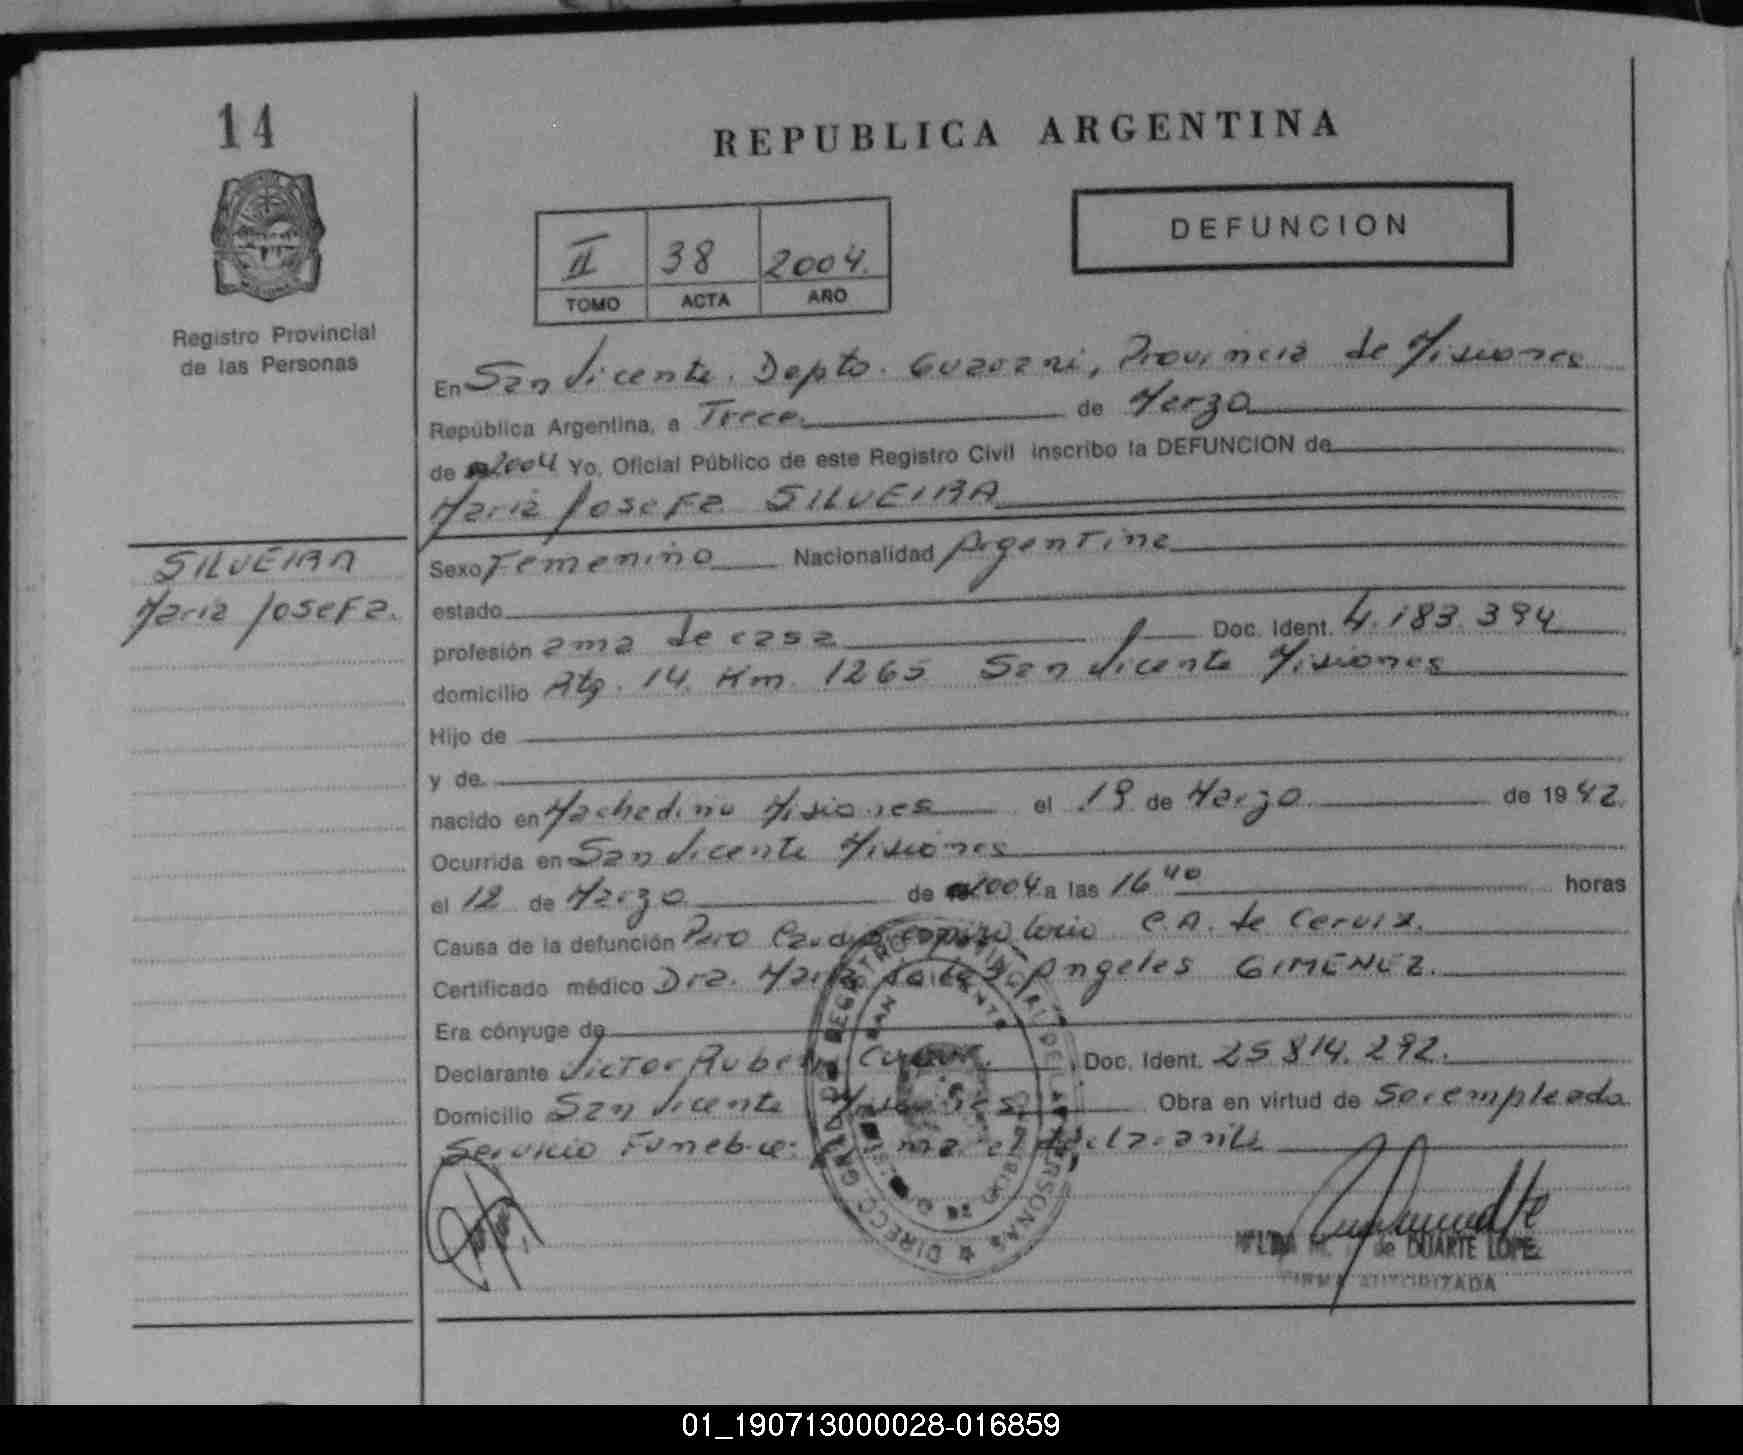 14
REPUBLICA ARGENTINA
DEFUNCION
II 38 2004.
TOMO ACTA AÑO
Registro Provincial
de las Personas
En San Vicente. Depto. Guarani, Provincia de Misiones
República Argentina, a Trece. de Marzo
de 2004 Yo, Oficial Público de este Registro Civil inscribo la DEFUNCION de
Maria Josefa SILVEIRA
SILVEIRA
Maria Josefa.
Sexo Femenino Nacionalidad Argentina
estado
profesión ama de casa Doc. Ident. 4.183.394
domicilio Rta. 14. Km. 1265 San Vicente Misiones
Hijo de
y de
nacido en Machedino Misiones el 19 de Marzo de 1942.
Ocurrida en San Vicente Misiones
el 12 de Marzo de 2004 a las 16 40 horas
Causa de la defunción Paro Cardiorespiratorio C.A. de Cervix.
Certificado médico Dra. Maria de los Angeles GIMENEZ.
Era cónyuge de
Declarante Victor Ruben Doc. Ident. 25.814.292.
Domicilio San Vicente Misiones Obra en virtud de Ser empleado
Servicio Funebre: Firma el declarante
DIRECC. GRAL. DEL REGISTRO PROVINCIAL DE LAS PERSONAS
SAN VICENTE
de DUARTE LOPE
FIRMA AUTORIZADA
01_190713000028-016859